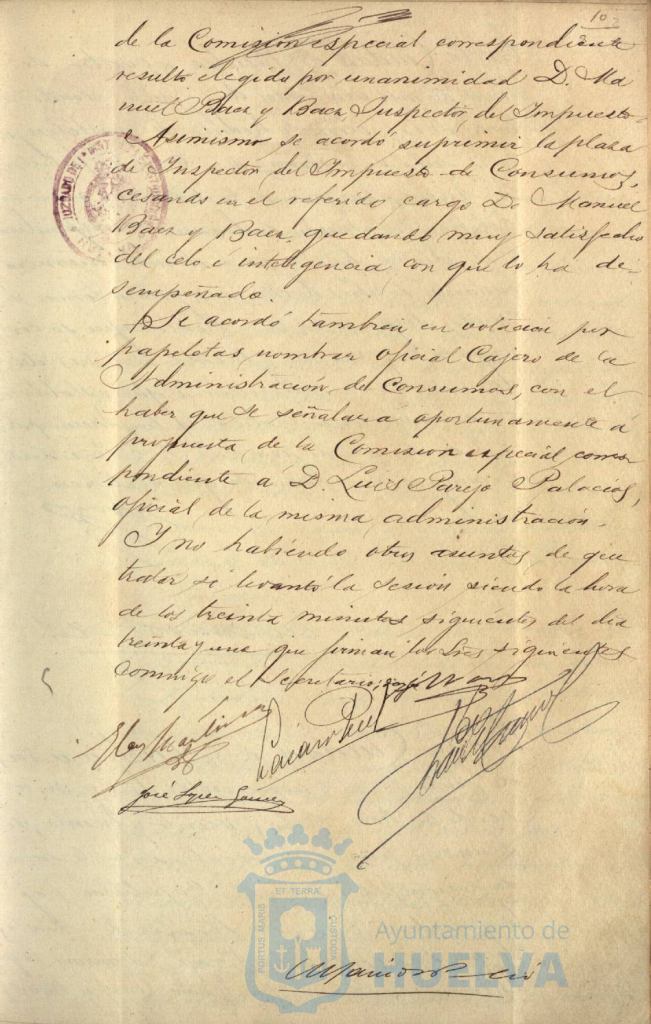 10
de la Comision especial correspondiente
resultó elegido por unanimidad D. Ma
nuel Baez y Baez, Inspector del Impuesto.
Asimismo se acordó suprimir la plaza
de Inspector del Impuesto de Consumos,
cesando en el referido cargo Dn Manuel
Baez y Baez, quedando muy satisfecho
del celo e inteligencia con que lo ha de-
sempeñado.
Se acordó tambien en votacion por
papeletas nombrar oficial Cajero de la
Administración de Consumos, con el
haber que se señalara oportunamente á
propuesta de la Comision especial corres
pondiente a D. Luis Parejo Palacios,
oficial de la misma administración.
Y no habiendo otros asuntos de que
tratar se levantó la sesión siendo la hora
de los treinta minutos siguientes del dia
treinta y uno que firman los Sres siguientes
conmigo el Secretario,
JUZGADO DE 1ª
José
ET TERRÆ
PORTUS MARIS
CUSTODIA
Ayuntamiento de
HUELVA